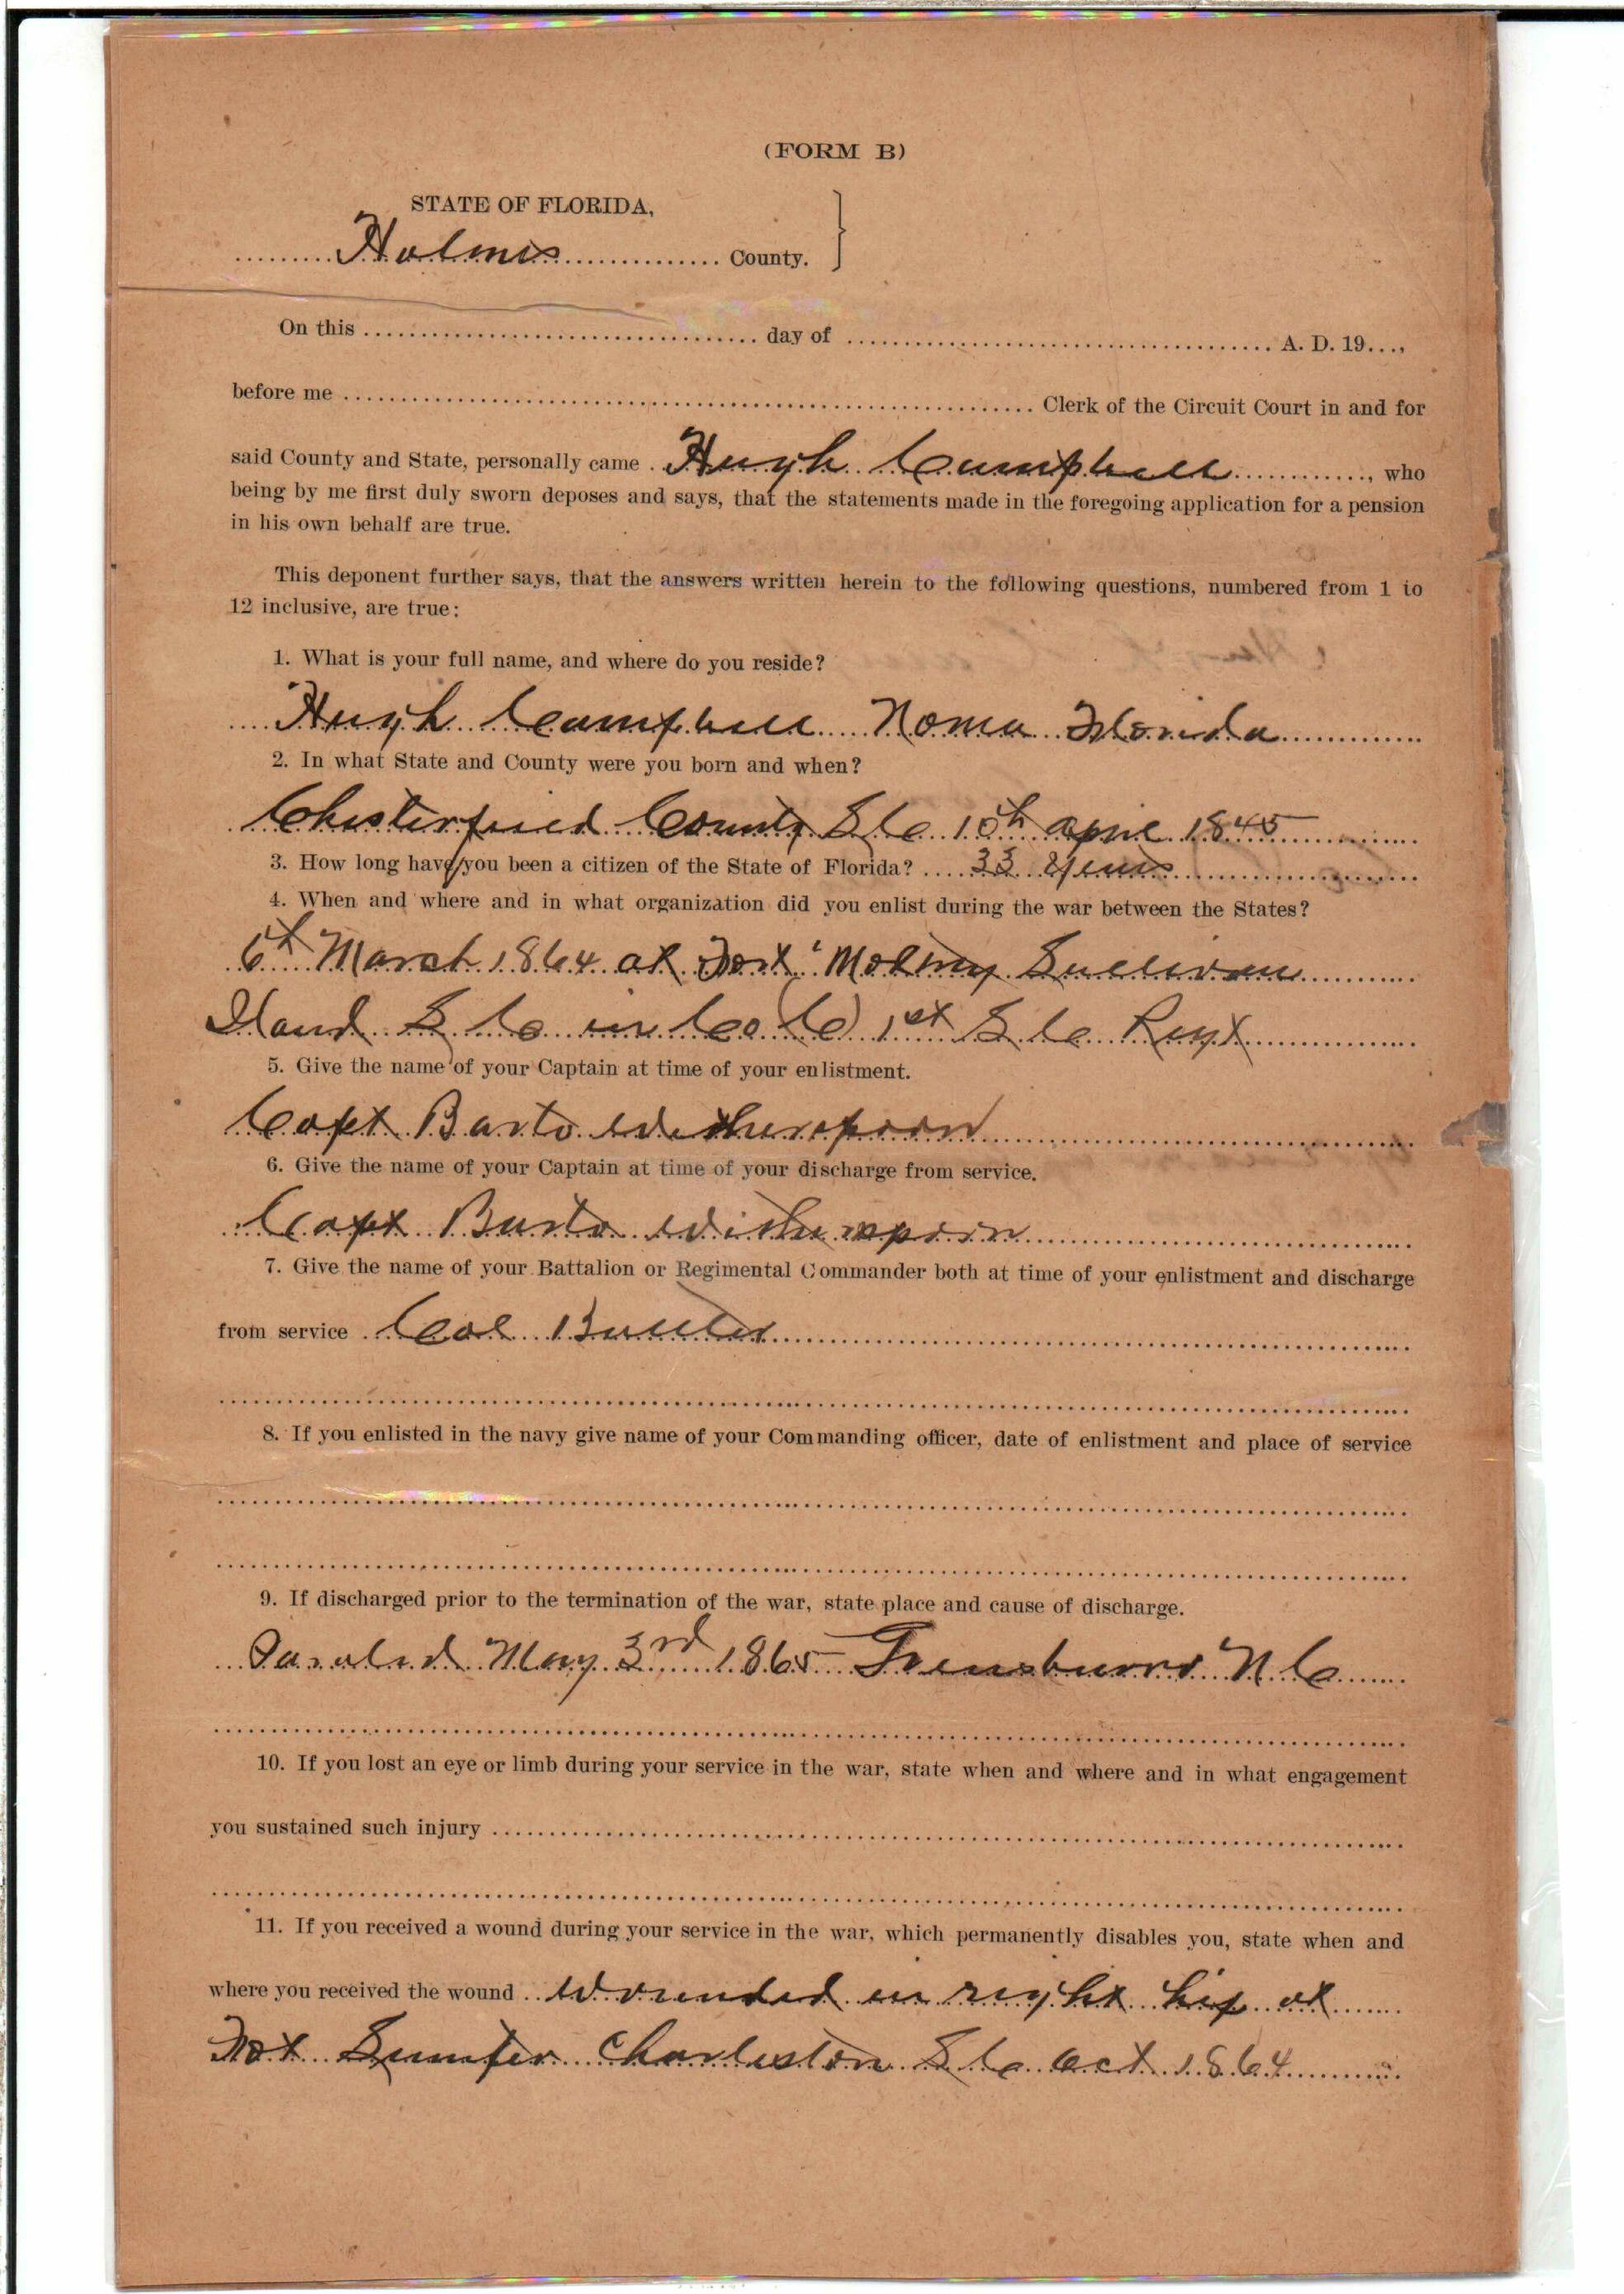 (FORM B)
STATE OF FLORIDA,
Holmes County.
On this day of A. D. 19...,
before me Clerk of the Circuit Court in and for
said County and State, personally came Hugh Campbell, who
being by me first duly sworn deposes and says, that the statements made in the foregoing application for a pension
in his own behalf are true.
This deponent further says, that the answers written herein to the following questions, numbered from 1 to
12 inclusive, are true:
1. What is your full name, and where do you reside?
Hugh Campbell Noma Florida
2. In what State and County were you born and when?
Chesterfield County S C 10th April 1845
3. How long have you been a citizen of the State of Florida? 33 Years
4. When and where and in what organization did you enlist during the war between the States?
6th March 1864 at Fort Sullivan
Iland S C in Co (C) 1st S C Regt
5. Give the name of your Captain at time of your enlistment.
Capt Barto Witherspoon
6. Give the name of your Captain at time of your discharge from service.
Capt Barto Witherspoon
7. Give the name of your Battalion or Regimental Commander both at time of your enlistment and discharge
from service Col Buttler
8. If you enlisted in the navy give name of your Commanding officer, date of enlistment and place of service
9. If discharged prior to the termination of the war, state place and cause of discharge.
Paroled May 3rd 1865 N C
10. If you lost an eye or limb during your service in the war, state when and where and in what engagement
you sustained such injury
11. If you received a wound during your service in the war, which permanently disables you, state when and
where you received the wound Wounded in right hip at
Fort Sumter Charleston S C Oct 1864